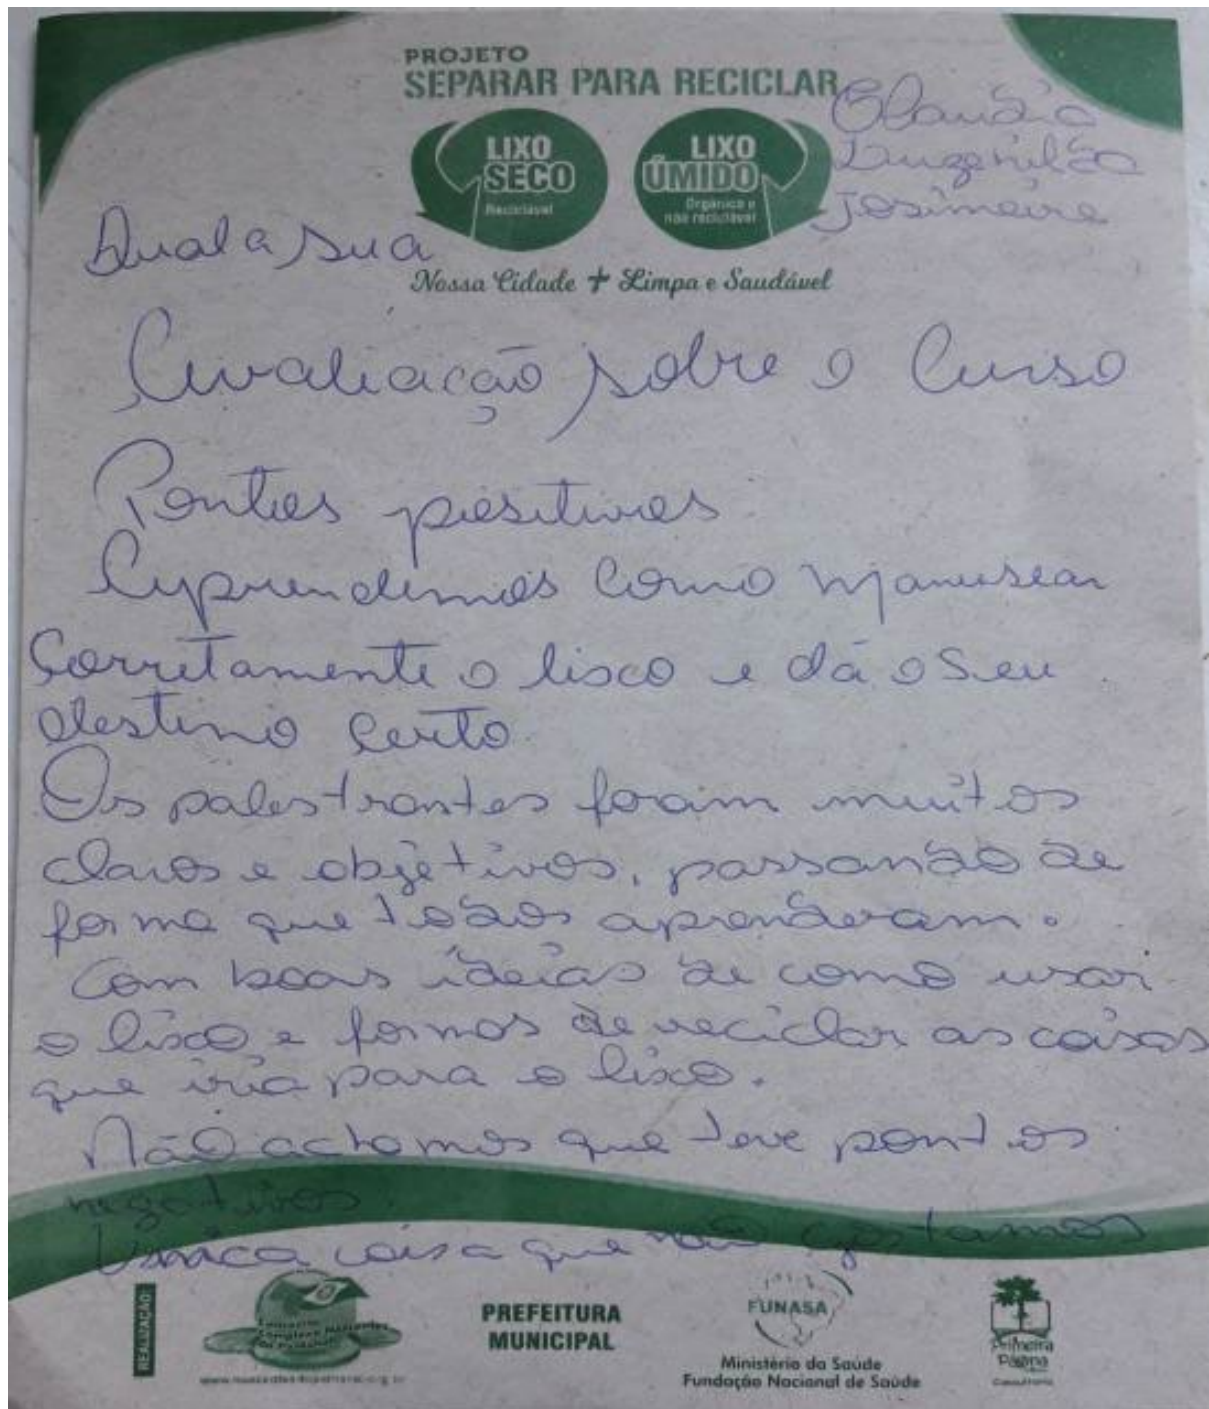 PROJETO
SEPARAR PARA RECICLAR
LIXO
SECO
Reciclável
LIXO
ÚMIDO
Orgânico e
não reciclável
Nossa Cidade + Limpa e Saudável
Claudia
Luzenilda
Josimeire
Qual a sua
Avaliação sobre o Curso
Pontos positivos
Aprendemos como manusear
Corretamente o lisco e dá o seu
destino certo.
Os palestrantes foram muitos
claros e objetivos, passando de
forma que todos aprenderam.
Com boas ideias de como usar
o lisco, e formas de reciclar as coisas
que iria para o lisco.
Não achamos que teve pontos
negativos.
Única coisa que não gostamos
REALIZAÇÃO:
PREFEITURA
MUNICIPAL
FUNASA
Ministério da Saúde
Fundação Nacional de Saúde
Primeira
Página
Consultoria